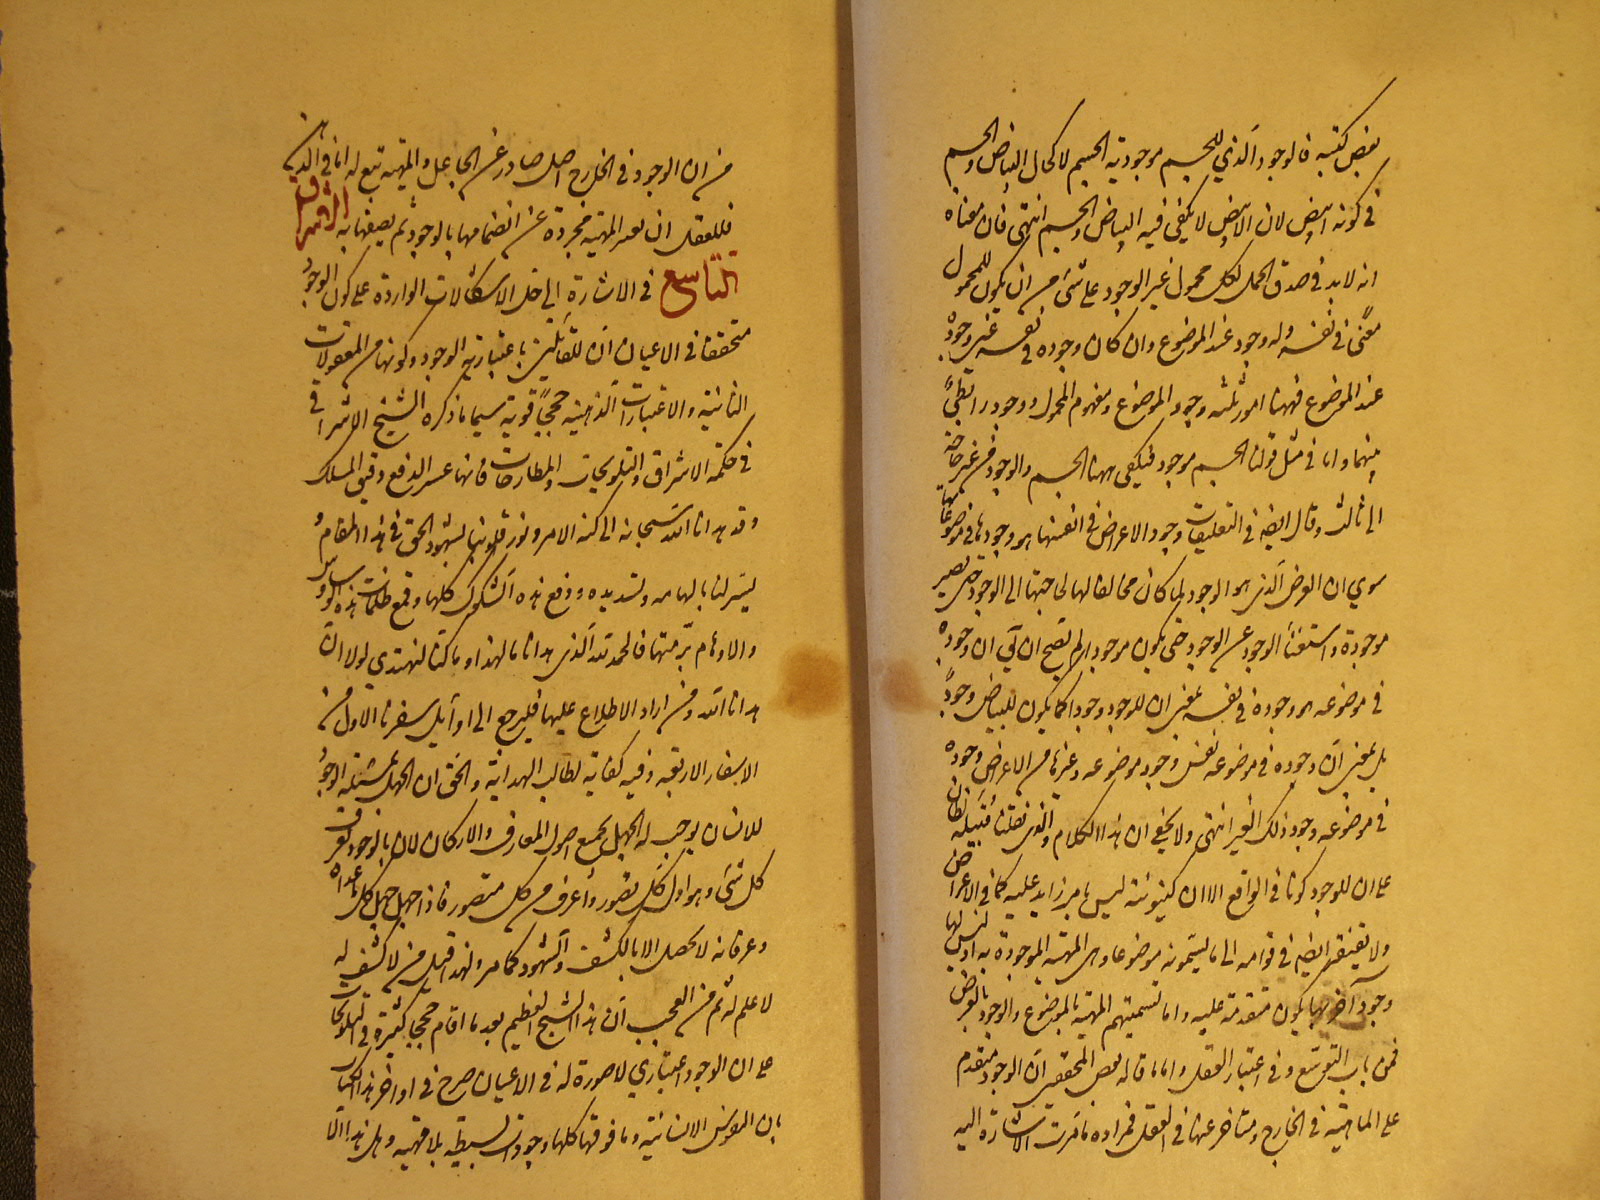 بعض كتبه فالوجود الذي للجسم موجودية الجسم لا كحال البياض والجسم
في كونه ابيض لان الابيض لا يكفى فيه البياض والجسم انتهى فان معناه
انه لابد في صدق الحمل لكل محمول غير الوجود على شئ من ان يكون للمحمول
معنى في نفسه وله وجود عند الموضوع وان كان وجوده في نفسه عين وجوده
عند الموضوع فههنا امور ثلثه وجود الموضوع ومفهوم المحمول ووجود رابطي
بينهما واما في مثل قولنا الجسم موجود فيكفي ههنا الجسم والوجود من غير حاجة
الى ثالث وقال ايضا في التعليقات وجود الاعراض في انفسها هو وجودها في موضوعاتها
سوي ان العرض الذي هو الوجود لما كان مخالفا لها لحاجتها الى الوجود حتى يصير
موجودة واستغناء الوجود عن الوجود حتى يكون موجودا لم يصح ان يق ان وجوده
في موضوعه هو وجوده في نفسه بمعنى ان للوجود وجودا كما يكون للبياض وجودا
بل بمعنى ان وجوده في موضوعه نفس وجود موضوعه وغيرها من الاعراض وجوده
في موضوعه وجود ذلك الغير انتهى ولا يخفى ان هذا الكلام والذي نقلنا قبيله نصان
على ان للوجود كونا في الواقع الا ان كينونته ليس بامر زايد عليه كما في الاعراض
ولا يفتقر ايضا في قوامه الى ما يسمونه موضوعا وهي المهية الموجودة به اذ ليس لها
وجود آخر بها يكون متقدمة عليه واما تسميتهم المهية بالموضوع والوجود بالعرض
فمن باب التوسع وفي اعتبار العقل واما ما قاله بعض المحققين ان الوجود متقدم
على الماهية في الخارج ومتاخر عنها في العقل فمراده ما مرت الاشارة اليه
من ان الوجود في الخارج اصل صادر عن الجاعل والمهية تبع له اما في الذهن
فللعقل ان يعتبر المهية مجردة عن انضمامها بالوجود ثم يصفها به الاشراق
التاسع في الاشارة الى حل الاشكالات الواردة على كون الوجود
متحققا في الاعيان ان للقائلين باعتبارية الوجود وكونها من المعقولات
الثانية والاعتبارات الذهنية حججاً قوية سيما ما ذكره الشيخ الاشراقي
في حكمة الاشراق والتلويحات والمطارحات فانها عسر الدفع دقيق المسلك
وقد هدانا الله سبحانه الى كنه الامر ونور قلوبنا بشهود الحق في هذا المقام و
يسر لنا بالهامه وتسديده ودفع هذه الشكوك كلها وقمع ظلمات هذه الوساوس
والاوهام برمتها فالحمد لله الذي هدانا لهذا وما كنا لنهتدي لولا ان
هدانا الله ومن اراد الاطلاع عليها فليرجع الى اوايل سفرنا الاول من
الاسفار الاربعة وفيه كفاية لطالب الهداية والحق ان الجهل بمسئلة الوجود
للانسان يوجب له الجهل بجميع اصول المعارف والاركان لان بالوجود يعرف
كل شئ وهو اول كل تصور واعرف من كل متصور فاذا جهل جهل كل ماعداه
وعرفانه لا يحصل الا بالكشف والشهود كما مر ولهذا قيل من لا كشف له
لا علم له ثم من العجب ان هذا الشيخ العظيم بعد ما اقام حججا كثيرة في التلويحات
على ان الوجود اعتباري لا صورة له في الاعيان صرح في اواخر هذا الكتاب
بان النفوس الانسانية وما فوقها كلها وجودات بسيطة بلا مهية وهل هذا الا